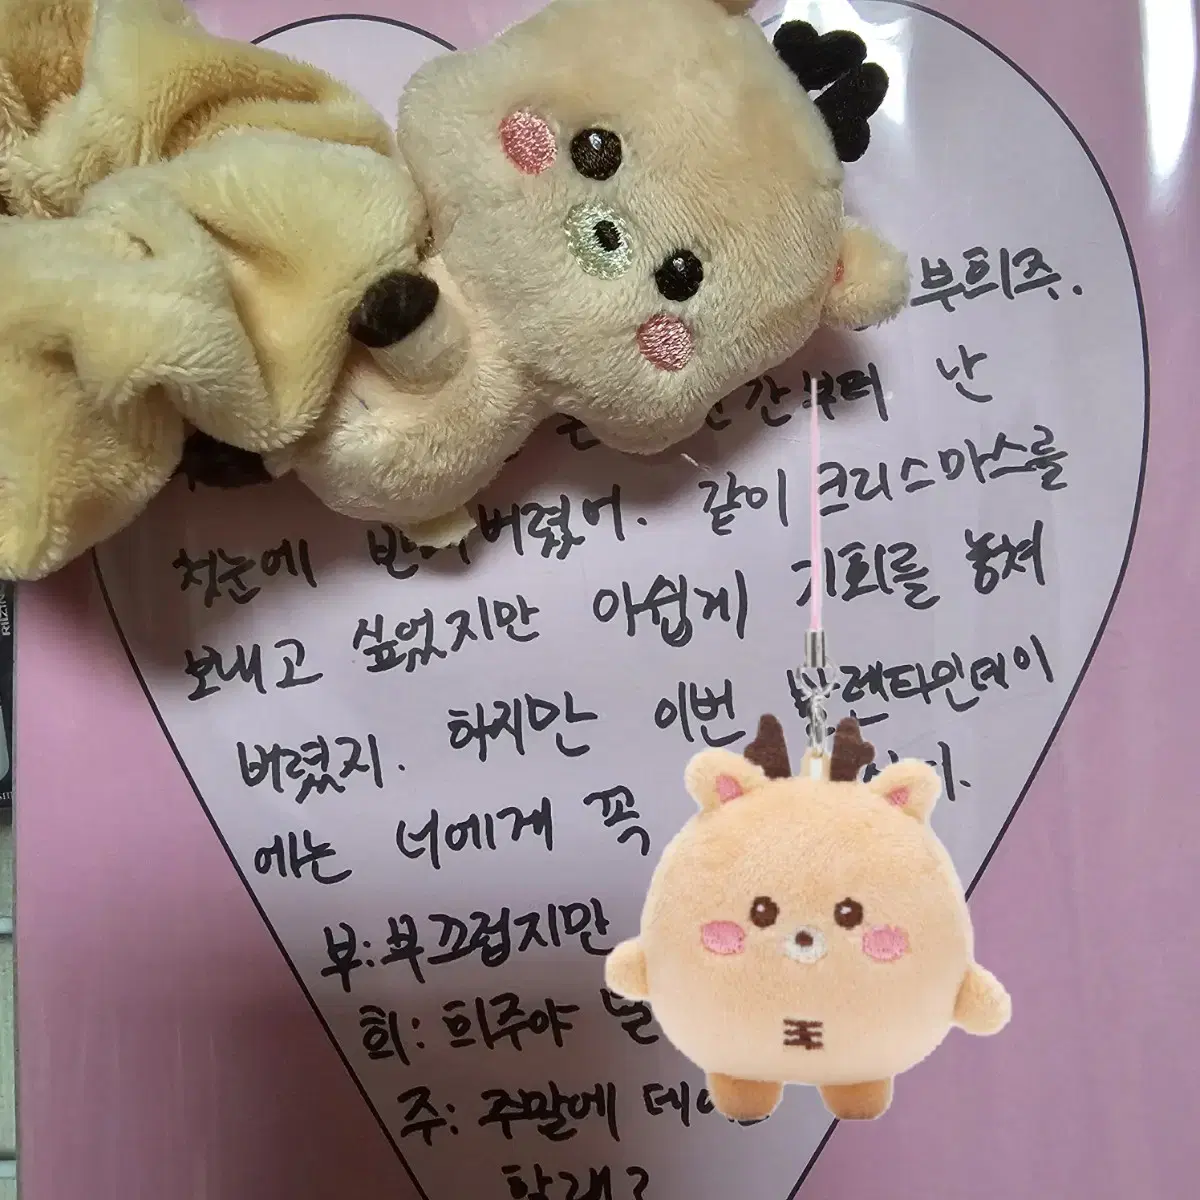 부희주.
간부터 난
첫눈에 버렸어. 같이 크리스마스를
보내고 싶었지만 아쉽게 기회를 놓쳐
버렸지. 하지만 이번 발렌타인데이
에는 너에게 꼭
부:부끄럽지만
희: 희주야 널
주: 주말에
할래?